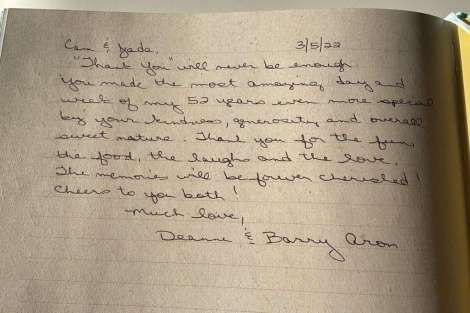 Cam & Jada, 3/5/22
"Thank You" will never be enough.
You made the most amazing day and
week of my 52 years even more special
by your kindness, generosity and overall
sweet nature. Thank you for the fun,
the food, the laughs and the love.
The memories will be forever cherished!
Cheers to you both!
Much love,
Deanne & Barry Aron